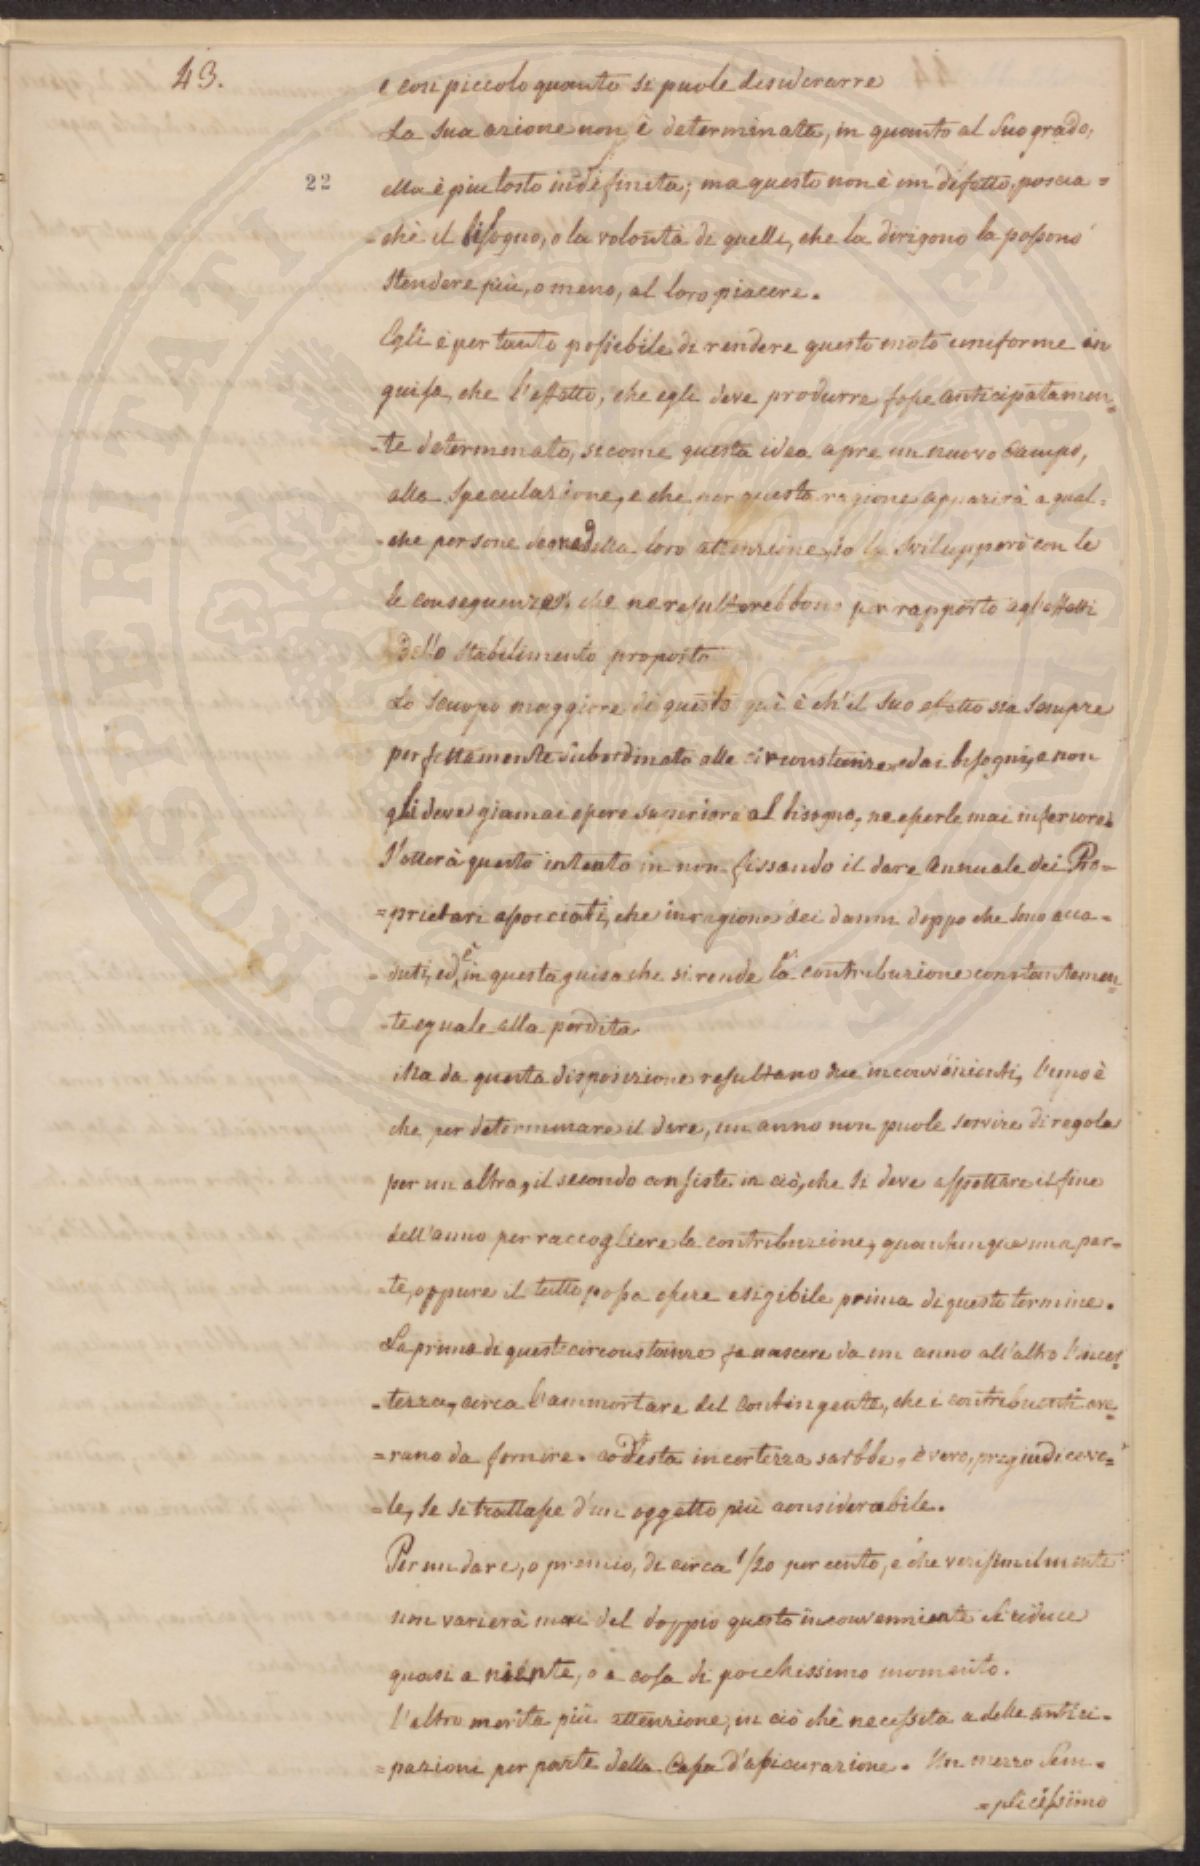 43.
22
e così piccolo quanto si puole desiderarre
La sua azione non è determinata, in quanto al suo grado,
ella è piutosto indefinita; ma questo non è un difetto, poscia=
=chè il bisogno, o la volontà di quelli, che la dirigono la possono
stendere più, o meno, al loro piacere.
Egli è per tanto possiebile di rendere questo moto uniforme in
guisa, che l'effetto, che egli deve produrre fosse anticipatamen=
=te determenato, secome questa idea apre un nuovo Campo,
alla speculazione, e che per questa ragione apparirà a qual=
=che persone degne della loro attenzione, io la svilupperò con le
le conseguenze, che ne resulterebbono per rapporto agl'effetti
dello stabelimento proposto
Lo scuopo maggiore di questo quì è ch'il suo effetto sia sempre
perfettamente subordinato alle circonstanze, ed ai bisogni, e non
gli deve giamai essere superiore al bisogno, ne esserle mai inferiore.
S'otterà questo intento in non fissando il dare Annuale dei Pro=
=prietari associati, che in ragione dei danni doppo che sono acca=
=duti, ed è in questa guisa che si rende la contribuzione constantemen=
=te eguale alla perdita.
Ma da questa disposizione resultano due inconvenienti, l'uno è
che per determinare il dare, un anno non puole servire di regola
per un altra, il secondo consiste in ciò, che si deve aspettare il fine
dell'anno per raccogliere la contribuzione, quantunque una par=
=te, oppure il tutto possa essere esigibile prima di questo termine.
La prima di queste circonstanze fa nascere da un anno all'altro l'incer=
=tezza, circa l'ammortare del Contingente, che i contribuenti ave=
=rano da fornire. Codesta incertezza sarbbe, è vero, pregiudiceve=
=le, se se trattasse d'un oggetto più considerabile.
Per un dare, o premio, di circa 1/20 per cento, e che verisimilmente
non varierà mai del doppio questo inconvenniente si riduce
quasi a niente, o a cosa di pocchissimo momento.
L'altro merita più attenzione, in ciò chè necessita a delle antici=
=pazioni per parte della Casa d'assicurazione. Un mezzo sem=
=plicissimo